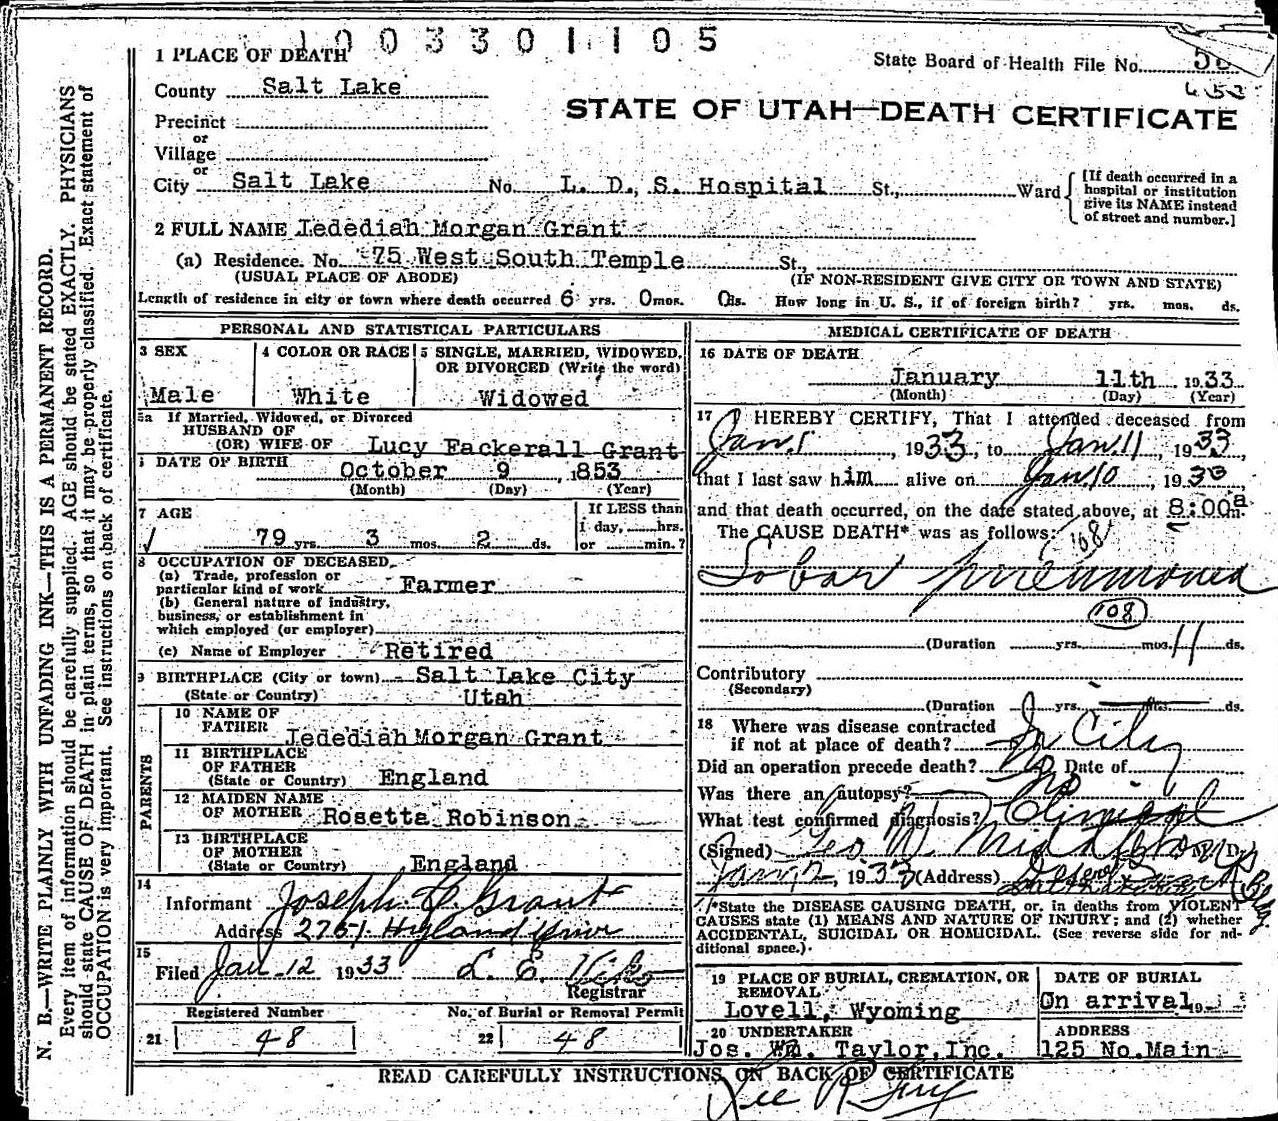 1003301105
1 PLACE OF DEATH
State Board of Health File No. 58
County Salt Lake
653
STATE OF UTAH—DEATH CERTIFICATE
Precinct
or
Village
or
City Salt Lake No. L. D. S. Hospital St., Ward
[If death occurred in a hospital or institution give its NAME instead of street and number.]
2 FULL NAME Jedediah Morgan Grant
(a) Residence. No. 75 West South Temple St.,
(USUAL PLACE OF ABODE) (IF NON-RESIDENT GIVE CITY OR TOWN AND STATE)
Length of residence in city or town where death occurred 6 yrs. 0 mos. 0 ds. How long in U. S., if of foreign birth? yrs. mos. ds.
PERSONAL AND STATISTICAL PARTICULARS
3 SEX
Male
4 COLOR OR RACE
White
5 SINGLE, MARRIED, WIDOWED,
OR DIVORCED (Write the word)
Widowed
5a If Married, Widowed, or Divorced
HUSBAND OF
(OR) WIFE OF Lucy Fackerall Grant
6 DATE OF BIRTH
October 9, 1853
(Month) (Day) (Year)
7 AGE
79 yrs. 3 mos. 2 ds.
If LESS than
1 day, hrs.
or min.?
8 OCCUPATION OF DECEASED,
(a) Trade, profession or
particular kind of work Farmer
(b) General nature of industry,
business, or establishment in
which employed (or employer)
(c) Name of Employer Retired
9 BIRTHPLACE (City or town) Salt Lake City
(State or Country) Utah
PARENTS
10 NAME OF
FATHER Jedediah Morgan Grant
11 BIRTHPLACE
OF FATHER
(State or Country) England
12 MAIDEN NAME
OF MOTHER Rosetta Robinson
13 BIRTHPLACE
OF MOTHER
(State or Country) England
14
Informant Joseph Grant
Address 2761 Hyland Drive
15
Filed Jan 12 1933 L. E.
Registrar
Registered Number No. of Burial or Removal Permit
21 48 22 48
MEDICAL CERTIFICATE OF DEATH
16 DATE OF DEATH
January 11th 1933
(Month) (Day) (Year)
17 I HEREBY CERTIFY, That I attended deceased from
Jan. 5, 1933, to Jan. 11, 1933,
that I last saw him alive on Jan 10, 1933
and that death occurred, on the date stated above, at 8:00a m.
The CAUSE DEATH* was as follows:
108
Lobar pneumonia
108
(Duration yrs. mos. 11 ds.
Contributory
(Secondary)
(Duration yrs. mos. ds.
18 Where was disease contracted
if not at place of death? In City
Did an operation precede death? No Date of
Was there an autopsy? No
What test confirmed diagnosis? Clinical
(Signed) Geo W Middleton M. D.
Jan 12, 1933 (Address) Deseret Bank Bldg.
*State the DISEASE CAUSING DEATH, or, in deaths from VIOLENT
CAUSES state (1) MEANS AND NATURE OF INJURY; and (2) whether
ACCIDENTAL, SUICIDAL OR HOMICIDAL. (See reverse side for ad-
ditional space.)
19 PLACE OF BURIAL, CREMATION, OR
REMOVAL
Lovell, Wyoming
DATE OF BURIAL
On arrival 19
20 UNDERTAKER
Jos. Wm. Taylor, Inc.
ADDRESS
125 No. Main
READ CAREFULLY INSTRUCTIONS ON BACK OF CERTIFICATE
Lee R
N. B.—WRITE PLAINLY WITH UNFADING INK—THIS IS A PERMANENT RECORD.
Every item of information should be carefully supplied. AGE should be stated EXACTLY. PHYSICIANS
should state CAUSE OF DEATH in plain terms, so that it may be properly classified. Exact statement of
OCCUPATION is very important. See instructions on back of certificate.